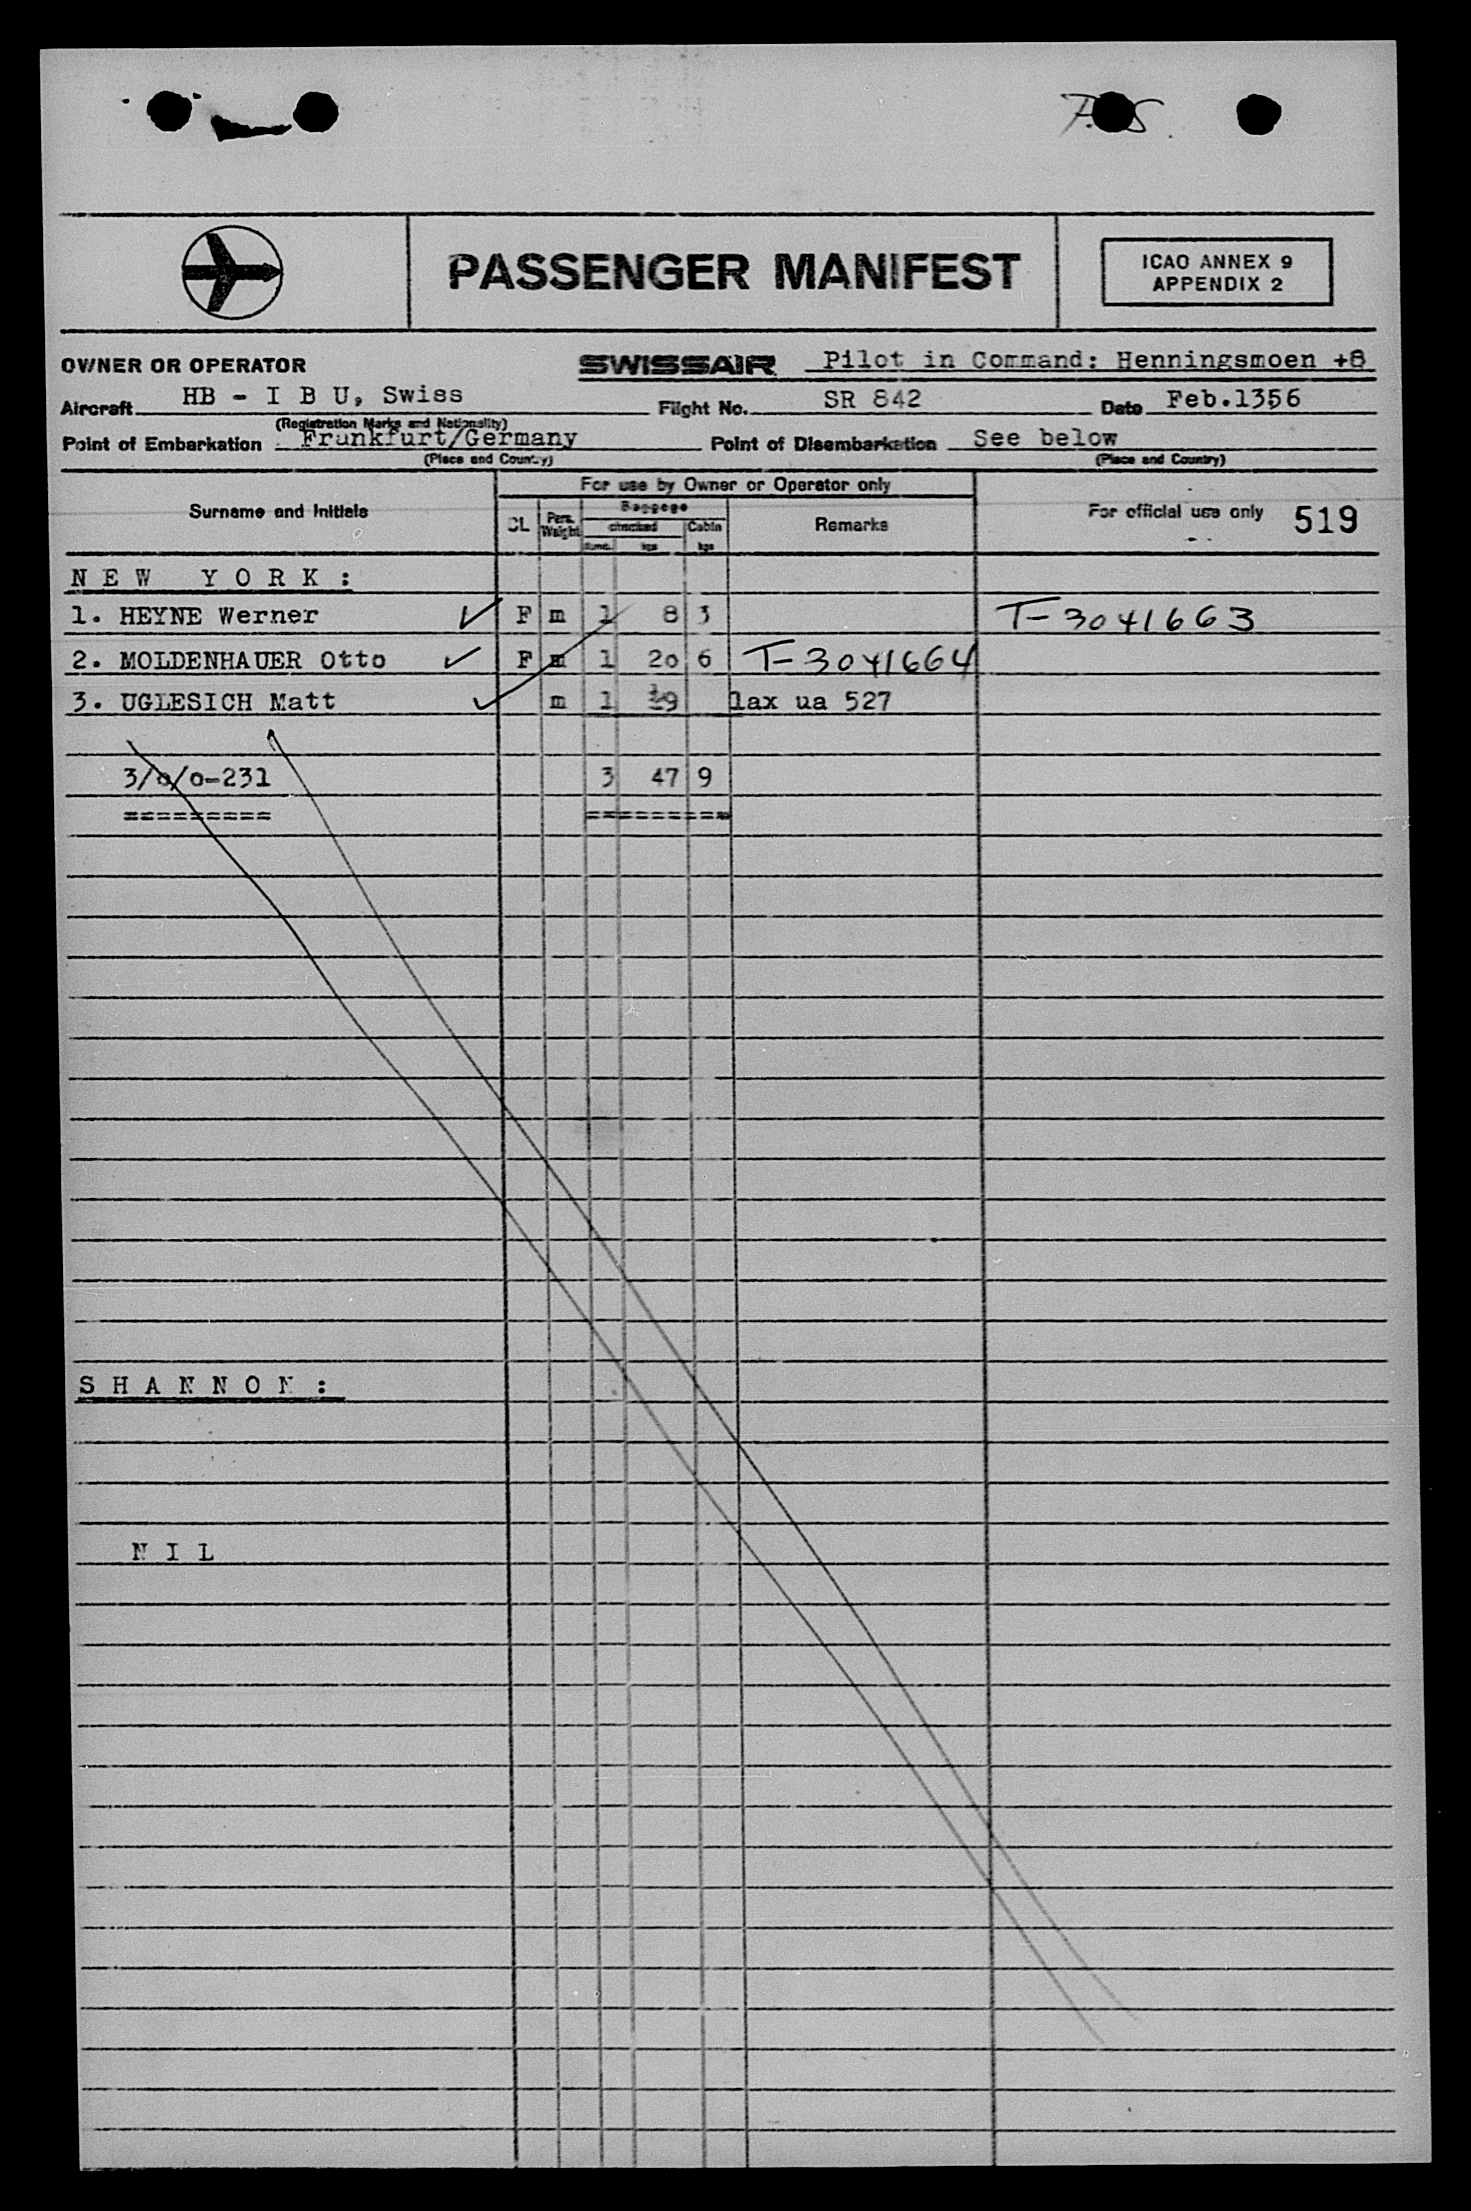 PASSENGER MANIFEST
ICAO ANNEX 9
APPENDIX 2
OWNER OR OPERATOR SWISSAIR Pilot in Command: Henningsmoen +8
Aircraft HB - I B U, Swiss Flight No. SR 842 Date Feb.1356
(Registration Marks and Nationality)
Point of Embarkation Frankfurt/Germany Point of Disembarkation See below
(Place and Country) (Place and Country)
For use by Owner or Operator only
Surname and Initials CL Pers. Weight Baggage checked Cabin kgs kgs Remarks For official use only 519
N E W Y O R K :
1. HEYNE Werner F m 1 8 3 T-3041663
2. MOLDENHAUER Otto F m 1 20 6 T-3041664
3. UGLESICH Matt m 1 19 lax ua 527
3/0/0-231 3 47 9
========= =========
S H A N N O N :
N I L